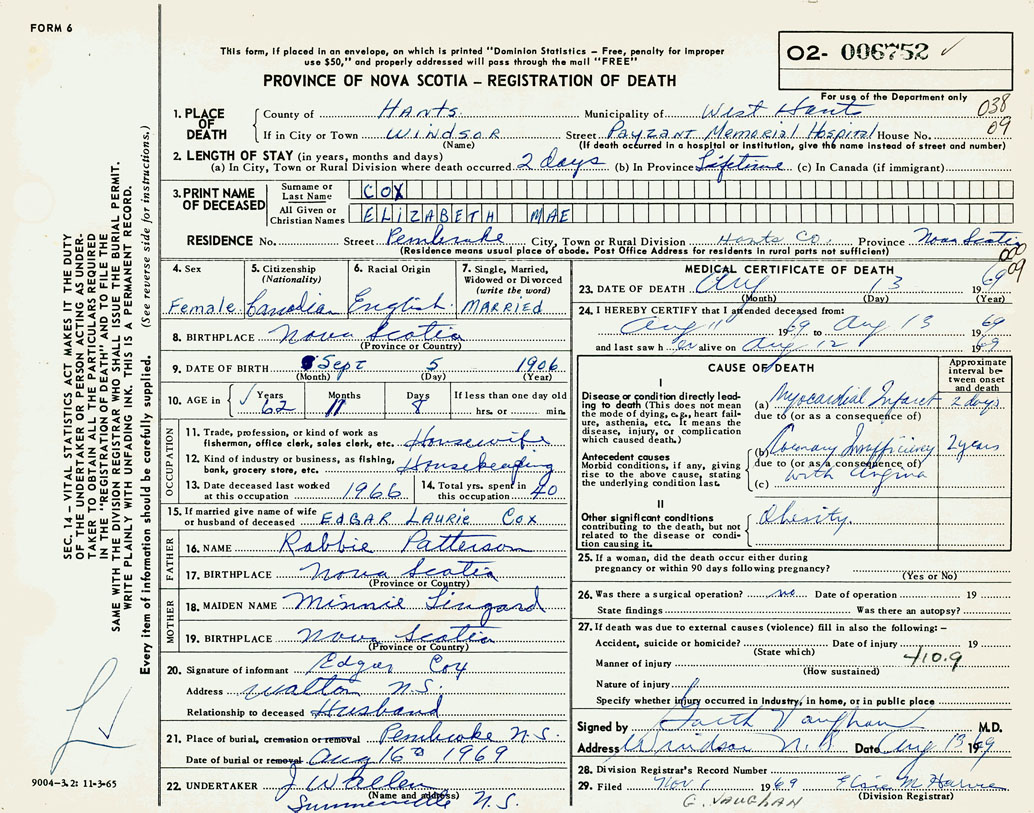 FORM 6
This form, if placed in an envelope, on which is printed "Dominion Statistics – Free, penalty for improper
use $50," and properly addressed will pass through the mail "FREE"
PROVINCE OF NOVA SCOTIA – REGISTRATION OF DEATH
02- 006752
For use of the Department only
038
09
1. PLACE OF DEATH
County of HANTS Municipality of West Hants
If in City or Town WINDSOR Street Payzant Memorial Hospital House No.
(Name) (If death occurred in a hospital or institution, give the name instead of street and number)
2. LENGTH OF STAY (in years, months and days)
(a) In City, Town or Rural Division where death occurred 2 days (b) In Province Lifetime (c) In Canada (if immigrant)
3. PRINT NAME OF DECEASED
Surname or Last Name COX
All Given or Christian Names ELIZABETH MAE
RESIDENCE No. Street Pembroke City, Town or Rural Division Hants Co. Province Nova Scotia
(Residence means usual place of abode. Post Office Address for residents in rural parts not sufficient)
000
09
4. Sex Female
5. Citizenship (Nationality) Canadian
6. Racial Origin English
7. Single, Married, Widowed or Divorced (write the word) MARRIED
8. BIRTHPLACE Nova Scotia
(Province or Country)
9. DATE OF BIRTH Sept 5 1906
(Month) (Day) (Year)
10. AGE in Years 62 Months 11 Days 8 If less than one day old hrs. or min.
OCCUPATION
11. Trade, profession or kind of work as fisherman, office clerk, sales clerk, etc. Housewife
12. Kind of industry or business, as fishing, bank, grocery store, etc. Housekeeping
13. Date deceased last worked at this occupation 1966
14. Total yrs. spent in this occupation 40
15. If married give name of wife or husband of deceased EDGAR LAURIE COX
FATHER
16. NAME Robbie Patterson
17. BIRTHPLACE Nova Scotia
(Province or Country)
MOTHER
18. MAIDEN NAME Minnie Lingard
19. BIRTHPLACE Nova Scotia
(Province or Country)
20. Signature of informant Edgar Cox
Address Walton N.S.
Relationship to deceased Husband
21. Place of burial, cremation or removal Pembroke N.S.
Date of burial or removal Aug 16th 1969
22. UNDERTAKER J Wallen
(Name and address)
Summerville N.S.
MEDICAL CERTIFICATE OF DEATH
23. DATE OF DEATH Aug 13 1969
(Month) (Day) (Year)
24. I HEREBY CERTIFY that I attended deceased from:
Aug 11 1969 to Aug 13 1969
and last saw h er alive on Aug 12 1969
CAUSE OF DEATH
Approximate interval between onset and death
I
Disease or condition directly leading to death (This does not mean the mode of dying, e.g., heart failure, asthenia, etc. It means the disease, injury, or complication which caused death.)
(a) Myocardial Infarct 2 days
due to (or as a consequence of)
Antecedent causes
Morbid conditions, if any, giving rise to the above cause, stating the underlying condition last.
(b) Coronary Insufficiency 2 years
due to (or as a consequence of)
with Angina
(c)
II
Other significant conditions contributing to the death, but not related to the disease or condition causing it. Obesity.
25. If a woman, did the death occur either during pregnancy or within 90 days following pregnancy?
(Yes or No)
26. Was there a surgical operation? no Date of operation 19
State findings Was there an autopsy?
27. If death was due to external causes (violence) fill in also the following: –
Accident, suicide or homicide? Date of injury 19
(State which)
Manner of injury 410.9
(How sustained)
Nature of injury
Specify whether injury occurred in Industry, in home, or in public place
Signed by Garth Vaughan M.D.
Address Windsor N.S. Date Aug 13 1969
28. Division Registrar's Record Number
29. Filed Nov 1 1969 Elsie M Harvie
(Division Registrar)
G. VAUGHAN
SEC. 14 – VITAL STATISTICS ACT MAKES IT THE DUTY
OF THE UNDERTAKER OR PERSON ACTING AS UNDER-
TAKER TO OBTAIN ALL THE PARTICULARS REQUIRED
IN THE "REGISTRATION OF DEATH" AND TO FILE THE
SAME WITH THE DIVISION REGISTRAR WHO SHALL ISSUE THE BURIAL PERMIT.
WRITE PLAINLY WITH UNFADING INK. THIS IS A PERMANENT RECORD.
Every item of information should be carefully supplied. (See reverse side for instructions.)
9004-3.2: 11-3-65